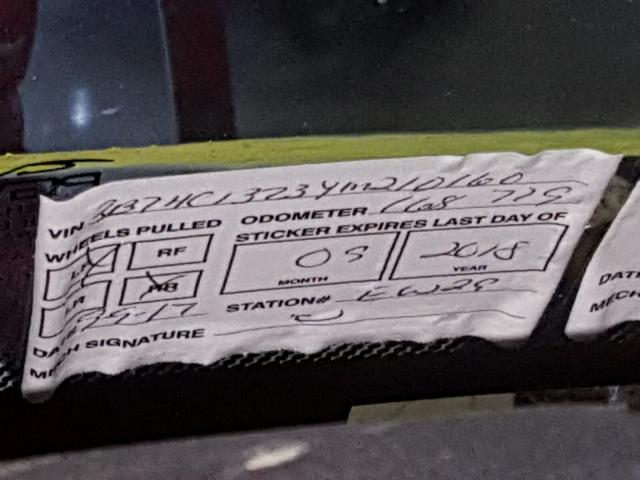 VIN 3B7HC13Z3YM210160
WHEELS PULLED ODOMETER 168 779
STICKER EXPIRES LAST DAY OF
LF RF 09 2018
LR RR MONTH YEAR
STATION# EW29
MECH SIGNATURE
DATE
MECH